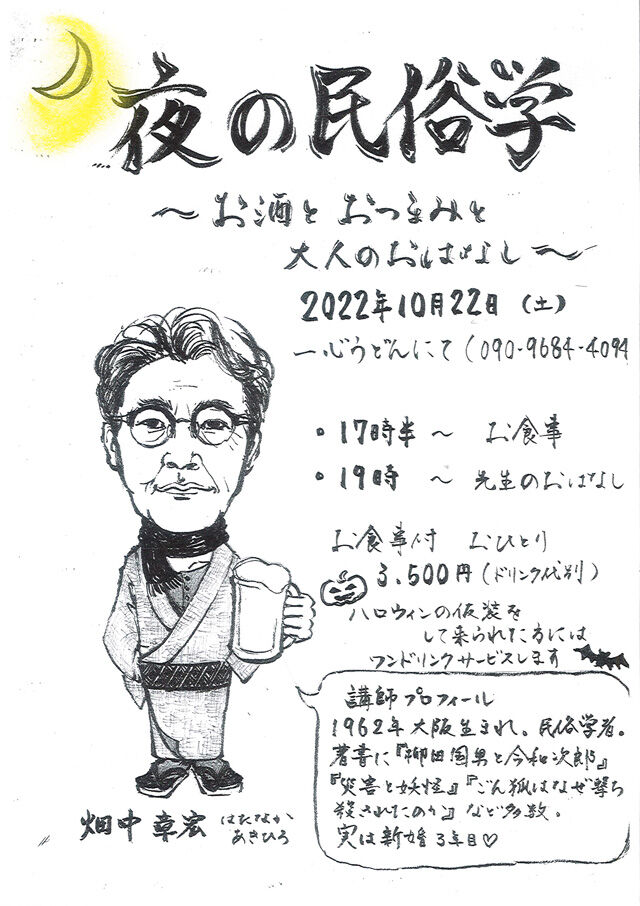 夜の民俗学
〜お酒とおつまみと
大人のおはなし〜
2022年10月22日(土)
一心うどんにて(090-9684-4094
・17時半 〜 お食事
・19時 〜 先生のおはなし
お食事付 おひとり
3.500円(ドリンク代別)
ハロウィンの仮装を
して来られた方には
ワンドリンクサービスします
講師プロフィール
1962年大阪生まれ。民俗学者。
著書に『柳田国男と今和次郎』
『災害と妖怪』『ごん狐はなぜ撃ち
殺されたのか』など多数。
実は新婚3年目♡
畑中章宏 はたなか
あきひろ